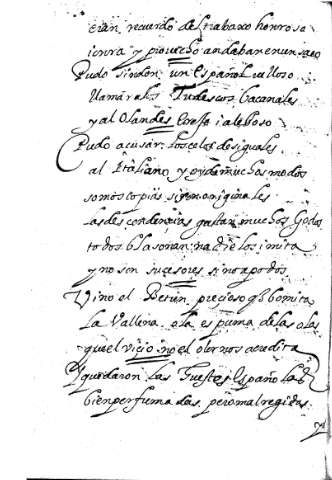 eran recuerdo del trabaxo honroso
i onra y prouecho andaban en un saco
Pudo sin don un español velloso
llamar a los Tudescos bacanales
y al Olandes
Pudo acusar los celos desiguales
al Italiano, y oy de muchos modos
somos copias si son originales
las descendencias gastan muchos Godos
todos blasonan, nadie los imita
y no son sucesores, sino apodos.
Vino el Betun precioso q̃ bomita
la Vallena o la espuma de las olas
que el vicio no el olor nos acredita
Y quedaron las Huestes Españolas
bien perfumadas, pero mal regidas.